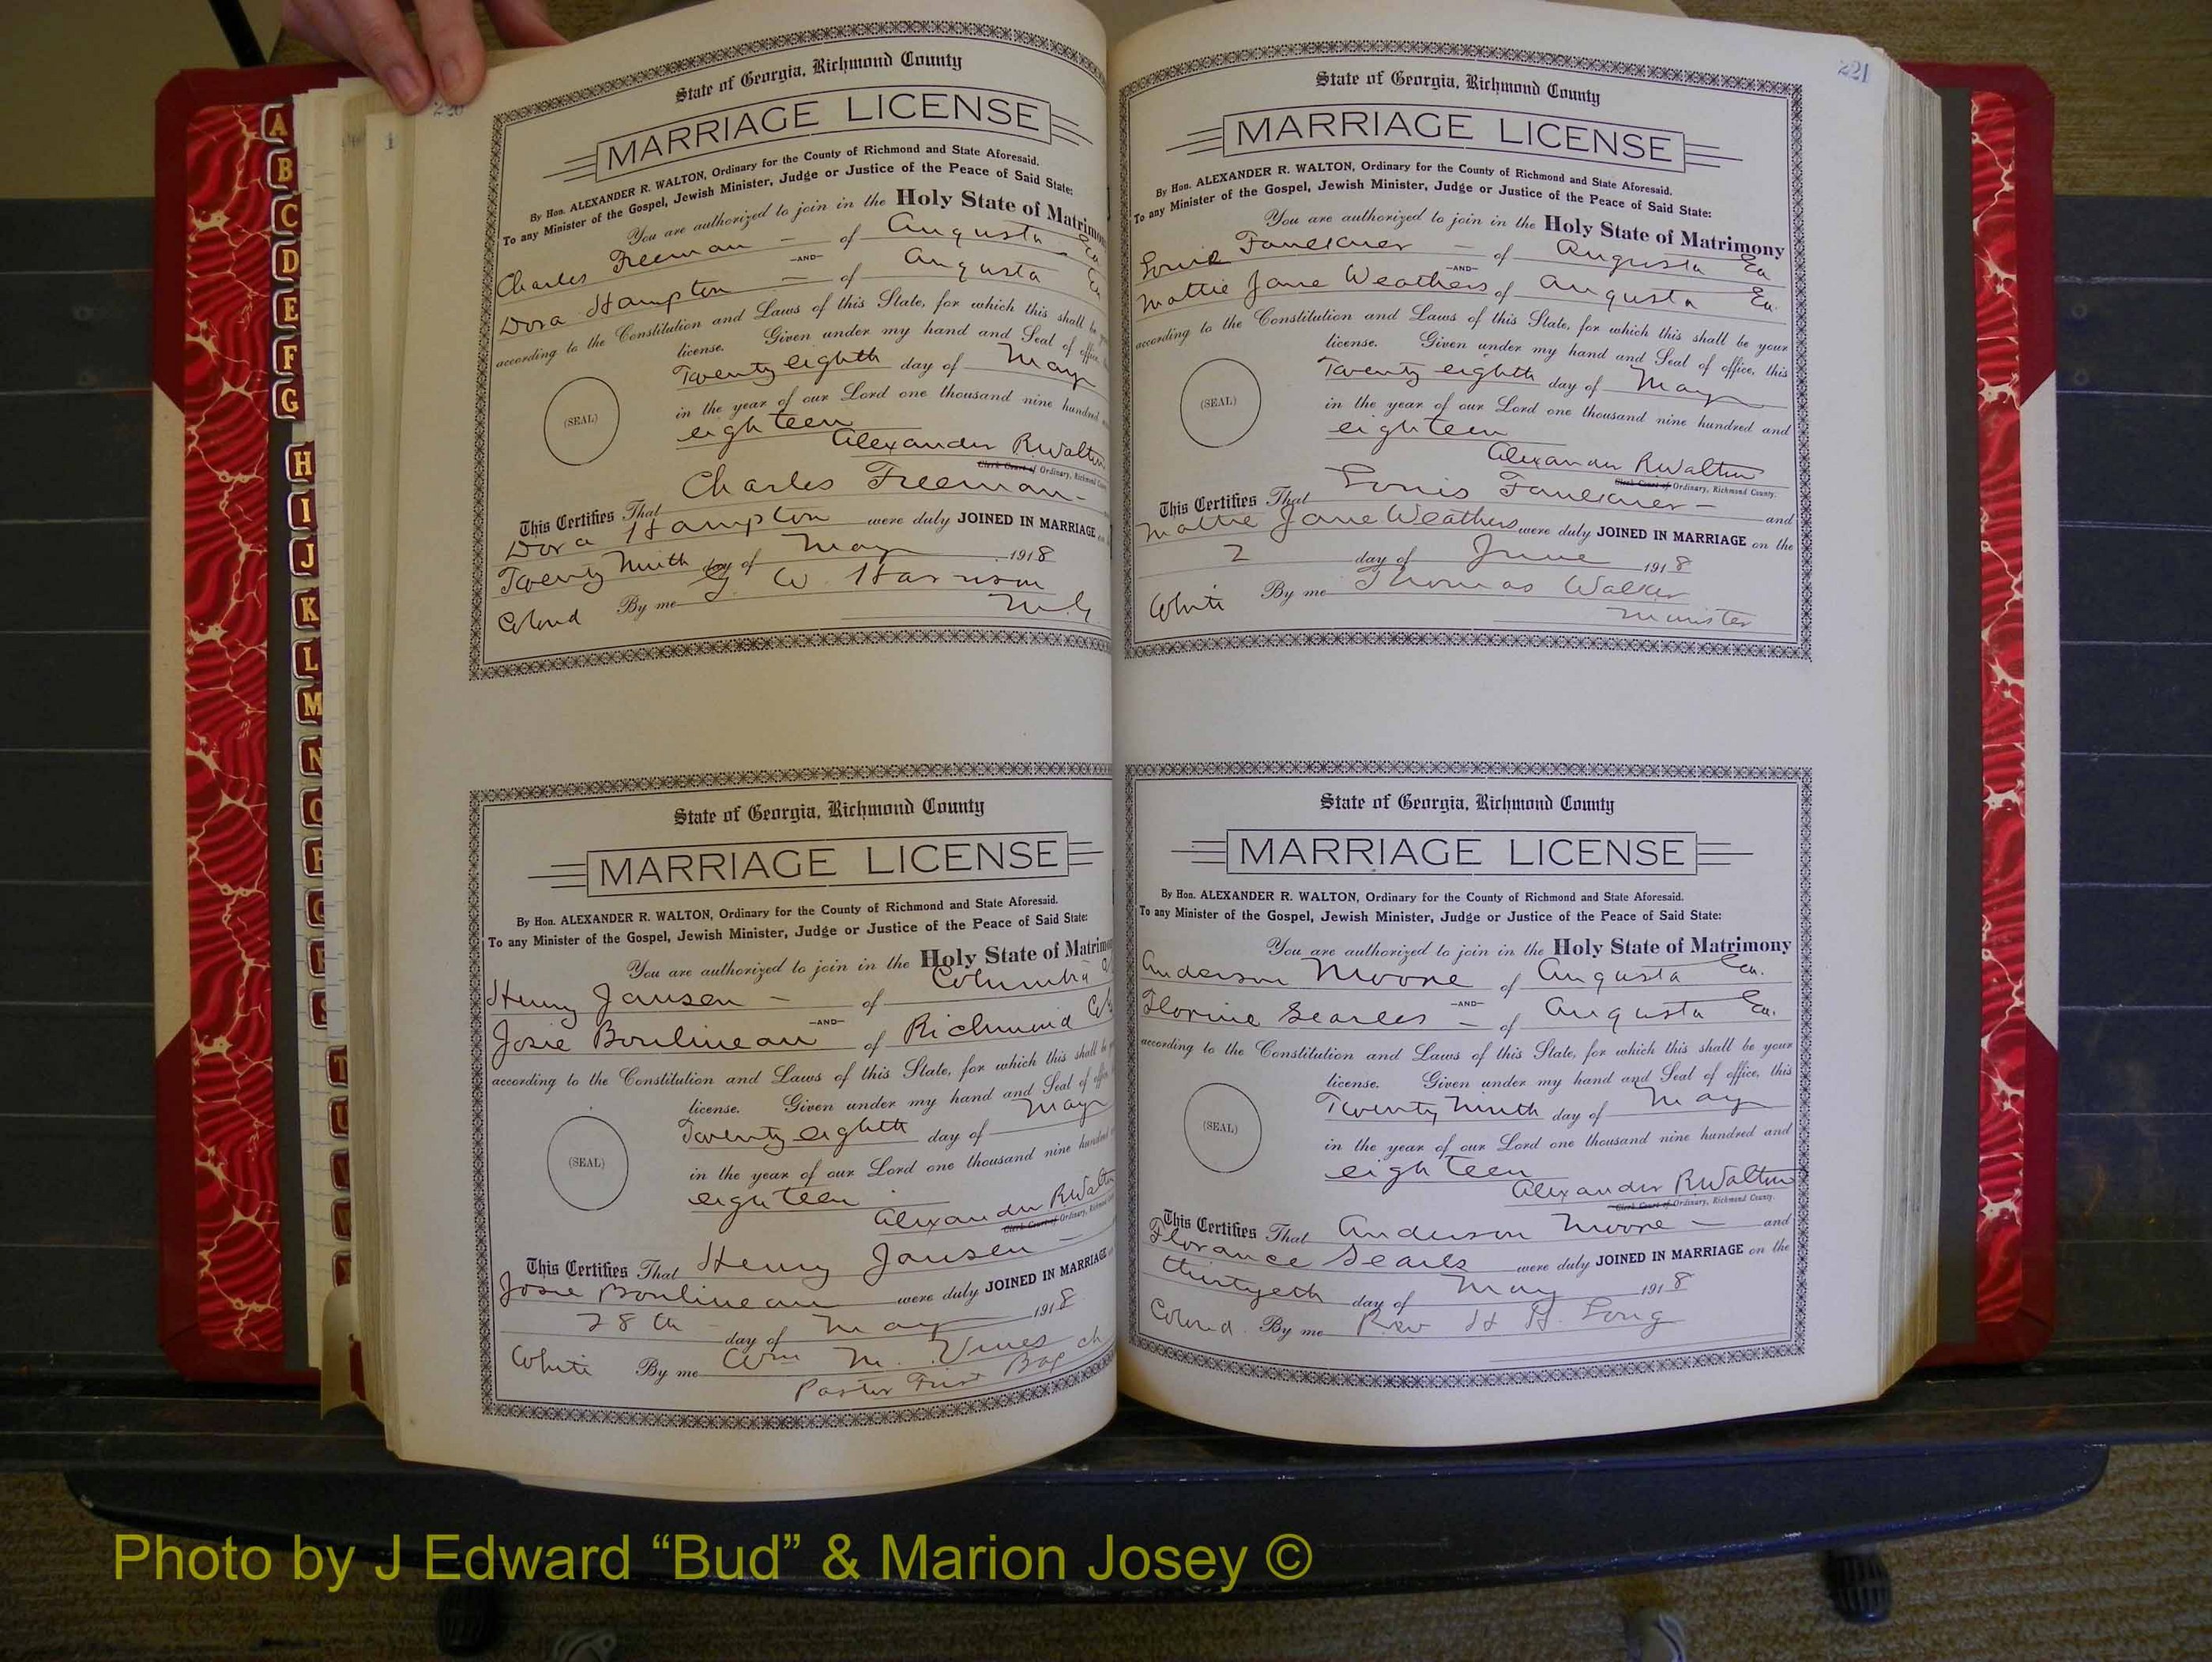 220
State of Georgia, Richmond County
MARRIAGE LICENSE
By Hon. ALEXANDER R. WALTON, Ordinary for the County of Richmond and State Aforesaid.
To any Minister of the Gospel, Jewish Minister, Judge or Justice of the Peace of Said State:
You are authorized to join in the Holy State of Matrimony
Charles Freeman — of Augusta Ga
—AND—
Dora Hampton — of Augusta Ga
according to the Constitution and Laws of this State, for which this shall be
license. Given under my hand and Seal of office,
Twenty eighth day of May
(SEAL)
in the year of our Lord one thousand nine hundred
eighteen
Alexander R Walton
Clerk Court of Ordinary, Richmond County
This Certifies That Charles Freeman —
Dora Hampton were duly JOINED IN MARRIAGE
Twenty Ninth day of May 1918
Colored By me G. W. Harrison
M. G.
State of Georgia, Richmond County
MARRIAGE LICENSE
By Hon. ALEXANDER R. WALTON, Ordinary for the County of Richmond and State Aforesaid.
To any Minister of the Gospel, Jewish Minister, Judge or Justice of the Peace of Said State:
You are authorized to join in the Holy State of Matrimony
Henry Jansen — of Columbia
—AND—
Josie Boulineau of Richmond Co
according to the Constitution and Laws of this State, for which this shall be
license. Given under my hand and Seal of office
Twenty eighth day of May
(SEAL)
in the year of our Lord one thousand nine hundred
eighteen
Alexander R Walton
Clerk Court of Ordinary, Richmond
This Certifies That Henry Jansen —
Josie Boulineau were duly JOINED IN MARRIAGE
28th day of May 1918
White By me Wm M. Vines
Pastor First Bap ch
221
State of Georgia, Richmond County
MARRIAGE LICENSE
By Hon. ALEXANDER R. WALTON, Ordinary for the County of Richmond and State Aforesaid.
To any Minister of the Gospel, Jewish Minister, Judge or Justice of the Peace of Said State:
You are authorized to join in the Holy State of Matrimony
Louis Faulkner — of Augusta Ga
—AND—
Mattie Jane Weathers of Augusta Ga.
according to the Constitution and Laws of this State, for which this shall be your
license. Given under my hand and Seal of office, this
Twenty eighth day of May
(SEAL)
in the year of our Lord one thousand nine hundred and
eighteen
Alexander R Walton
Clerk Court of Ordinary, Richmond County.
This Certifies That Louis Faulkner — and
Mattie Jane Weathers were duly JOINED IN MARRIAGE on the
2 day of June 1918
White By me Thomas Walker
Minister
State of Georgia, Richmond County
MARRIAGE LICENSE
By Hon. ALEXANDER R. WALTON, Ordinary for the County of Richmond and State Aforesaid.
To any Minister of the Gospel, Jewish Minister, Judge or Justice of the Peace of Said State:
You are authorized to join in the Holy State of Matrimony
Anderson Moore of Augusta Ga.
—AND—
Florine Searles — of Augusta Ga.
according to the Constitution and Laws of this State, for which this shall be your
license. Given under my hand and Seal of office, this
Twenty Ninth day of May
(SEAL)
in the year of our Lord one thousand nine hundred and
eighteen
Alexander R Walton
Clerk Court of Ordinary, Richmond County.
This Certifies That Anderson Moore — and
Florance Searls were duly JOINED IN MARRIAGE on the
thirtyeth day of May 1918
Colored. By me Rev H H. Long
A
B
C
D
E
F
G
H
I
J
K
L
M
N
O
P
Q
R
S
T
U
V
W
Photo by J Edward “Bud” & Marion Josey ©